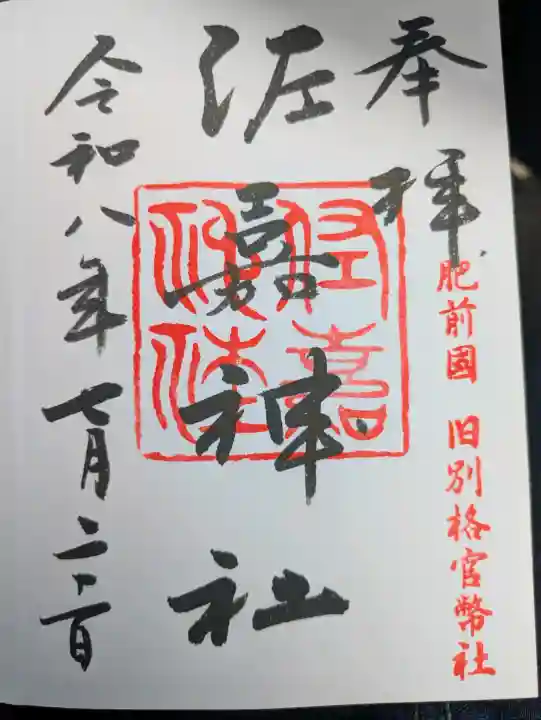 奉拝
肥前國 旧別格官幣社
佐嘉神社
令和八年七月二十日